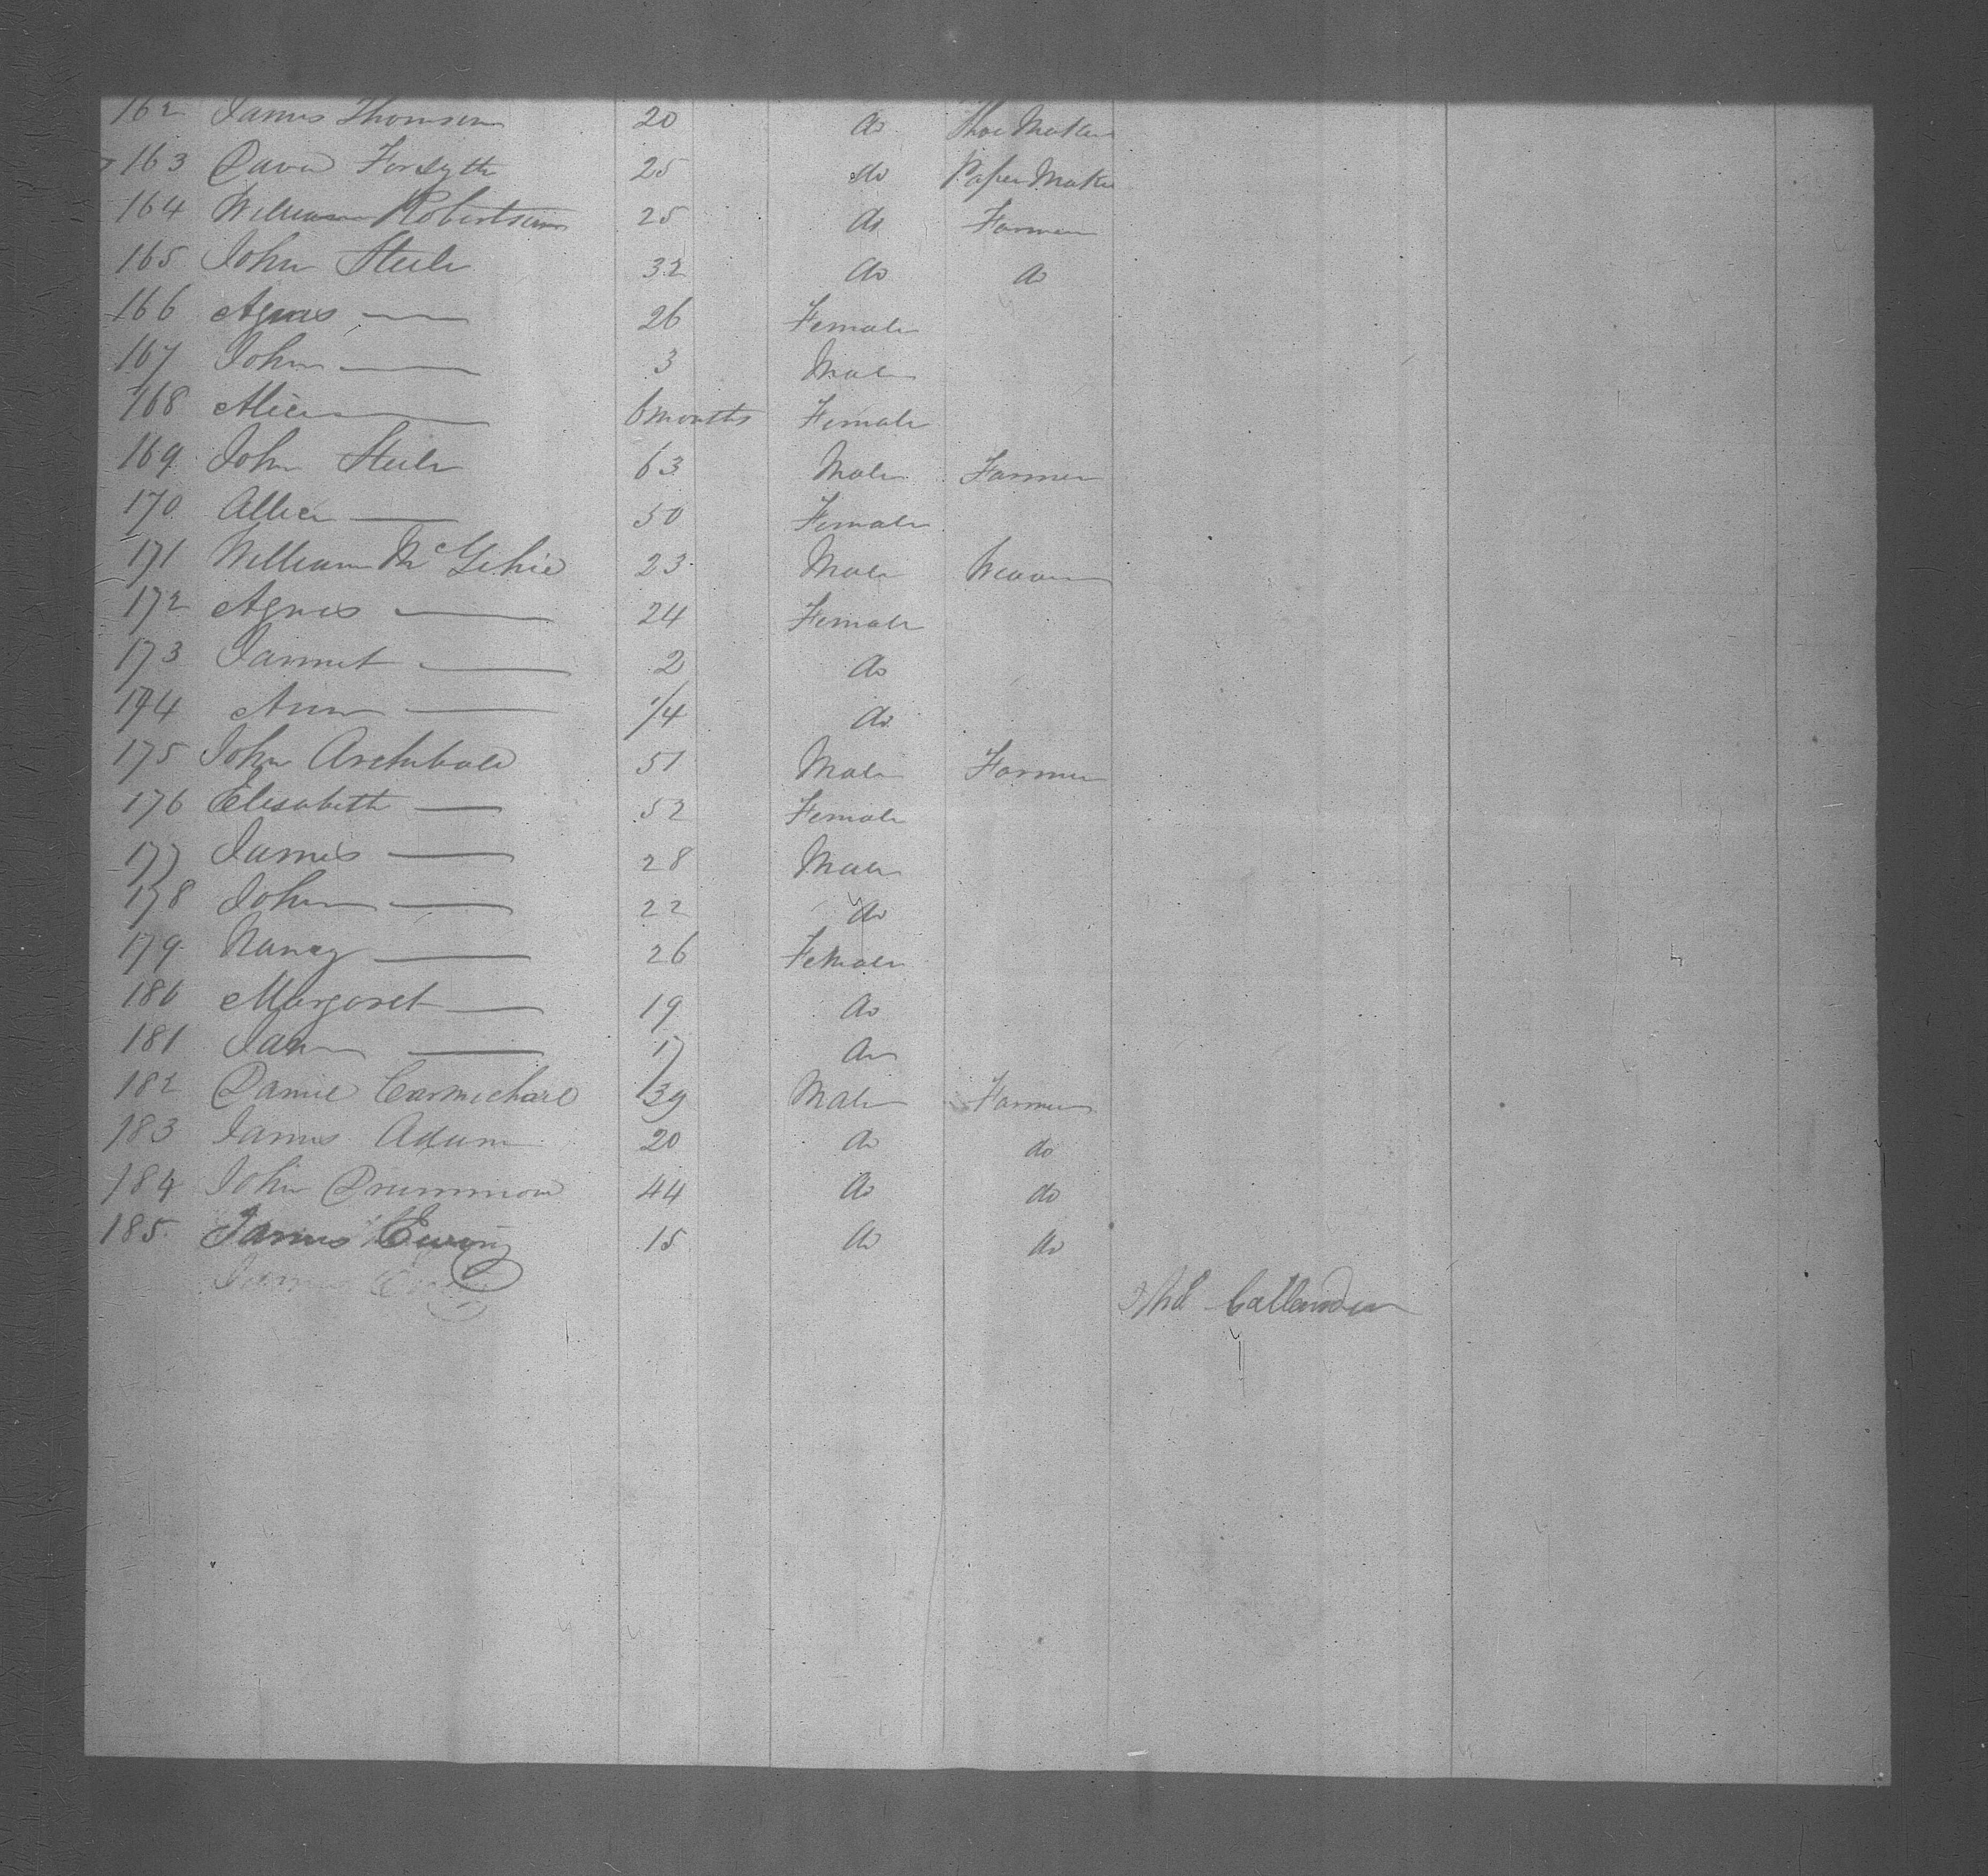 162 James Thomson 20 do Shoe Maker
163 David Forsyth 25 do Paper Maker
164 William Robertson 25 do Farmer
165 John Steele 32 do do
166 Agnes —— 26 Female
167 John —— 3 Male
168 Alice —— 6 months Female
169 John Steele 63 Male Farmer
170 Allice —— 50 Female
171 William McGehie 23 Male Weaver
172 Agnes —— 24 Female
173 Jannet —— 2 do
174 Ann —— 1/4 do
175 John Archibald 51 Male Farmer
176 Elisabeth —— 52 Female
177 James —— 28 Male
178 John —— 22 do
179 Nancy —— 26 Female
180 Margaret —— 19 do
181 Jane —— 17 do
182 Daniel Carmichael 39 Male Farmer
183 James Adam 20 do do
184 John Drummond 44 do do
185 James Ewing 15 do do
James Ewing
Callender